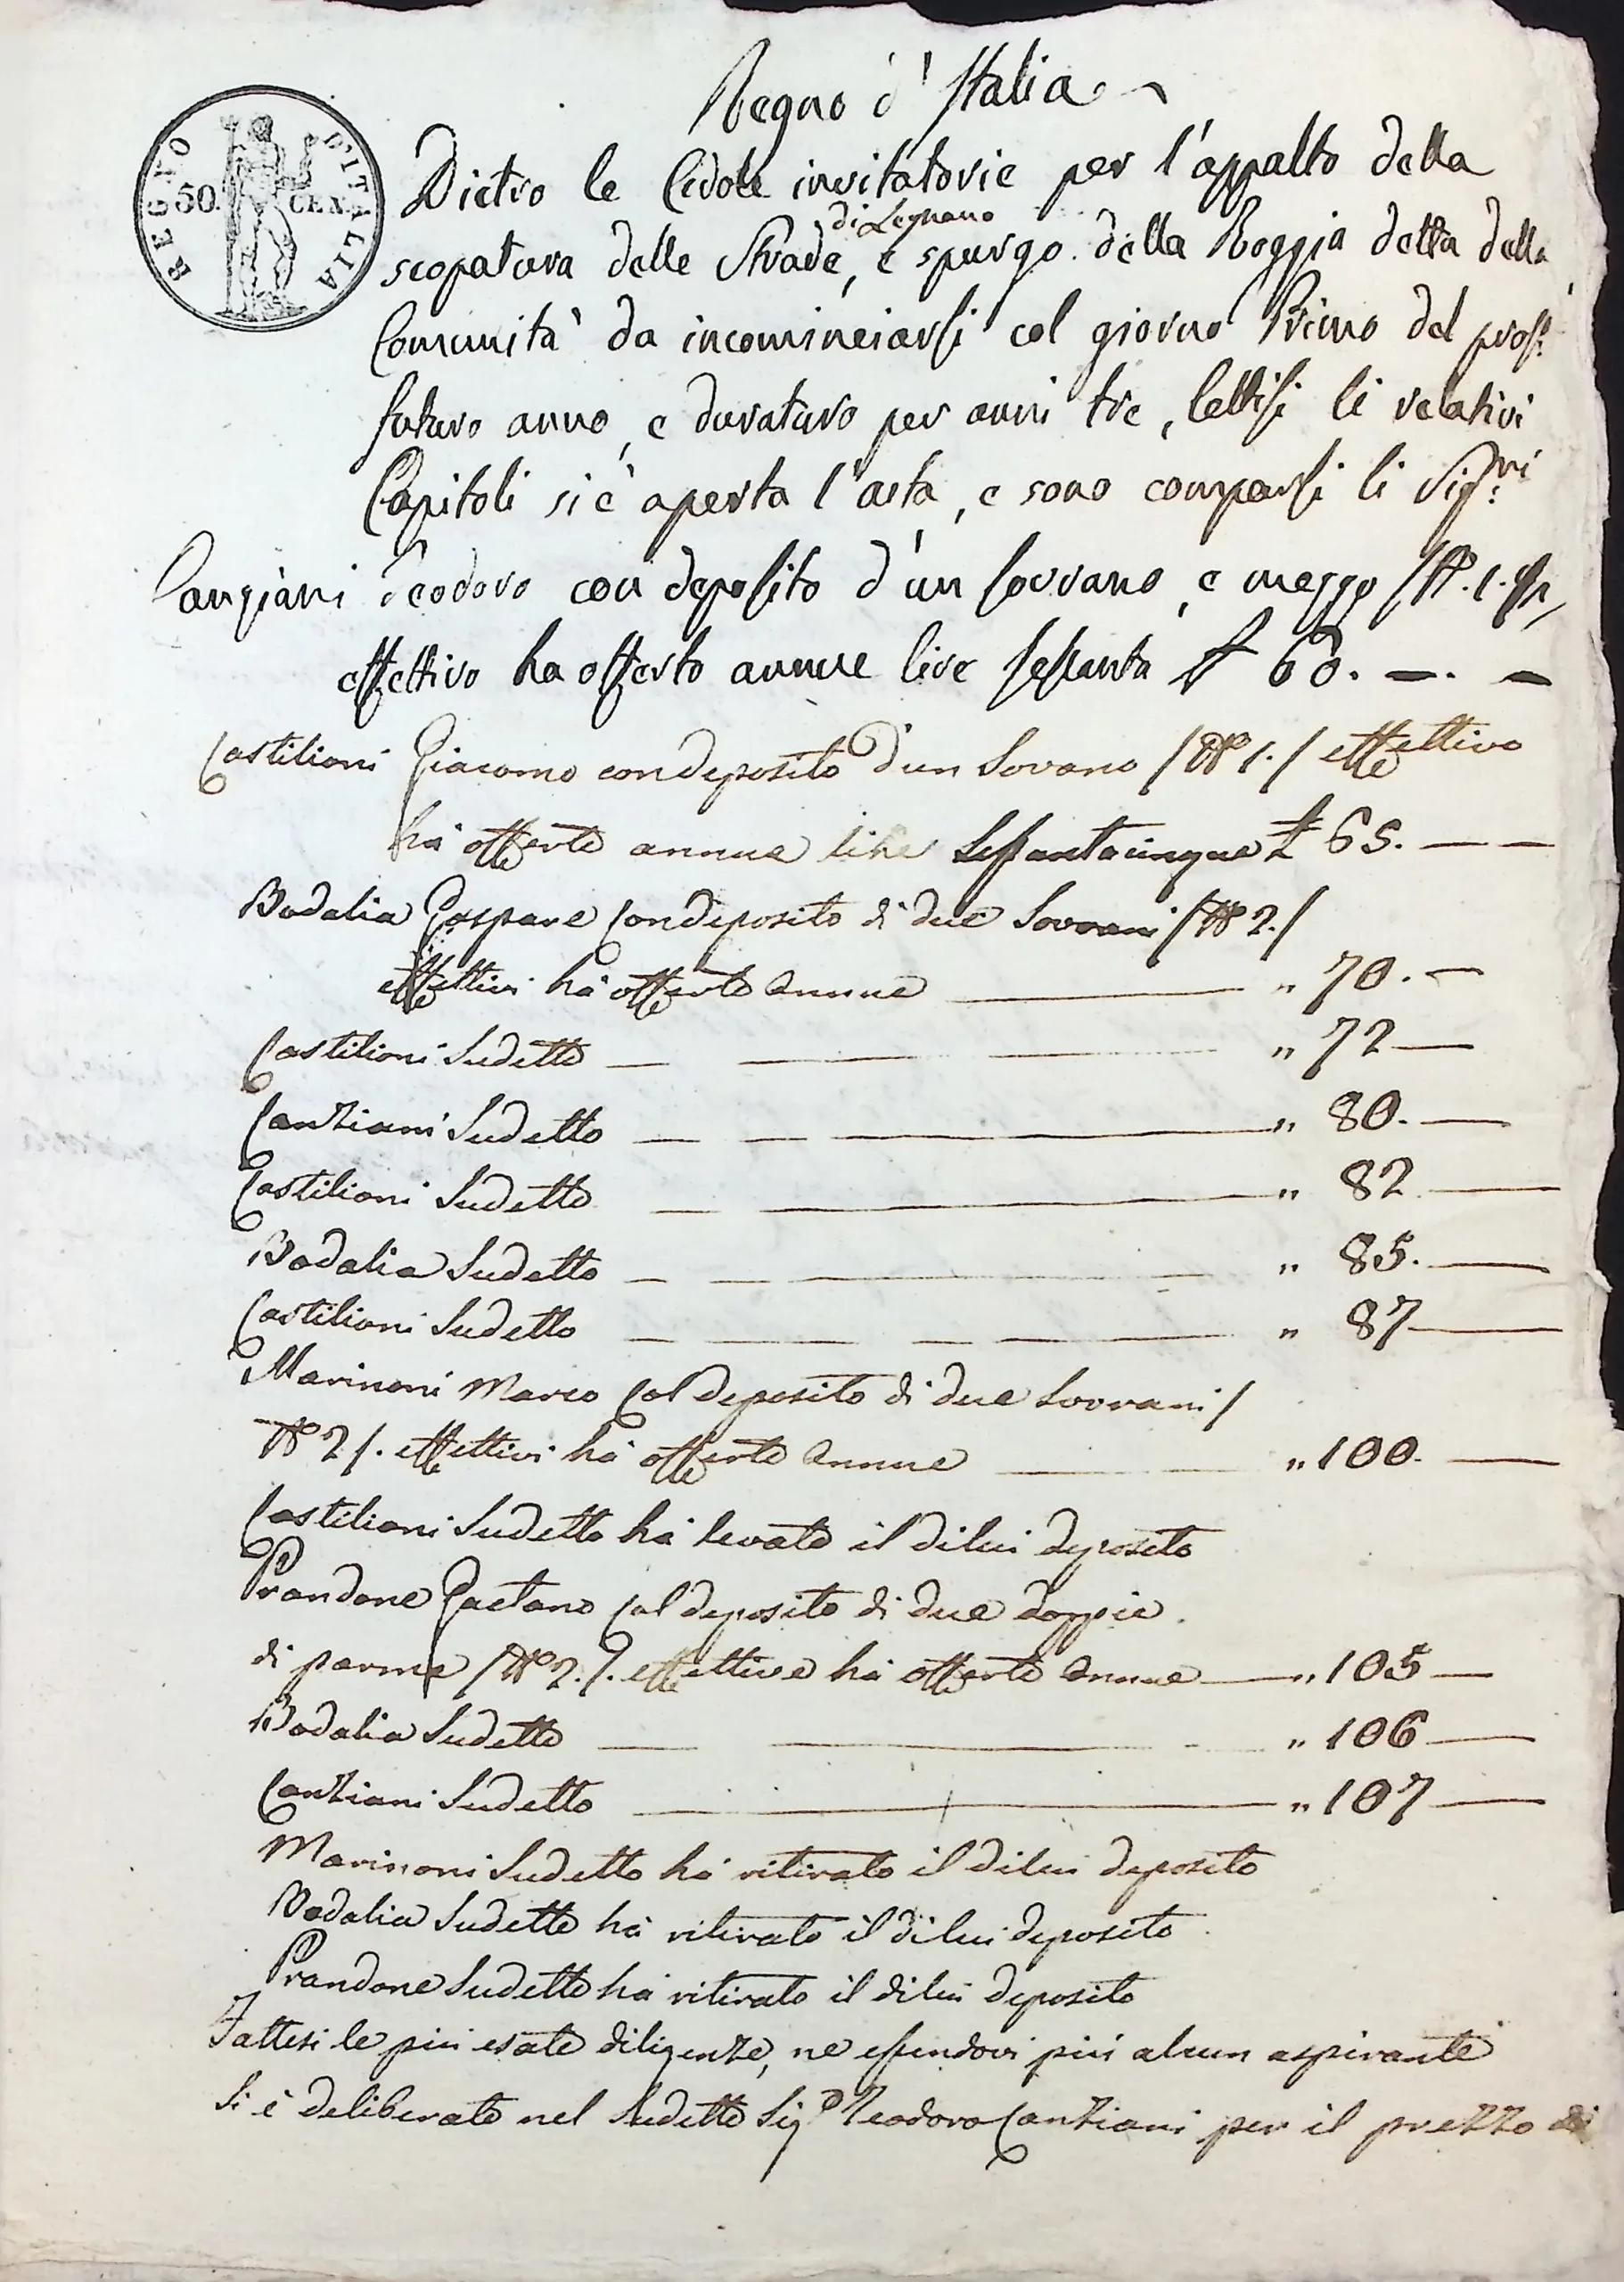 Regno d'Italia
REGNO D'ITALIA
50. CEN.
Dietro le Cedole invitatorie per l'appalto della
di Legnano
scopatura delle Strade, e spurgo della Roggia detta della
Comunità da incominciarsi col giorno Primo del pross.
futuro anno, e duraturo per anni tre, lettisi li relativi
Capitoli si è aperta l'asta, e sono comparsi li Sig.ri
Canziani Teodoro con deposito d'un sovrano, e mezzo /N. 1.
effettivo ha offerto annue lire sessanta £ 60. —. —
Castilioni Giacomo con deposito d'un Sovrano /N° 1./ effettivo
há offerto annue lire sessantacinque £ 65. — —
Badalia Gaspare Con deposito di due Sovrani /N° 2./
effettivi há offerto annue — " 70. —
Castilioni Sudetto — — — " 72 —
Canziani Sudetto — — — " 80. —
Castilioni Sudetto — — " 82 —
Badalia Sudetto — — — " 85. —
Castilioni Sudetto — — — — " 87 —
Marinoni Marco Col deposito di due Sovrani /
N° 2/. effettivi há offerto annue — — " 100. —
Castilioni Sudetto há levato il dilui deposito
Prandone Gaetano Col deposito di due doppie
di parma /N° 2./. effettive há offerto annue — " 105 —
Badalia Sudetto — — " 106 —
Canziani Sudetto — " 107 —
Marinoni Sudetto há ritirato il dilui deposito
Badalia Sudetto há ritirato il dilui deposito
Prandone Sudetto há ritirato il dilui deposito
Fattesi le piú esate diligenze, ne essendovi piú alcun aspirante
Si é deliberato nel Sudetto Sig.r Teodoro Canziani per il prezzo di